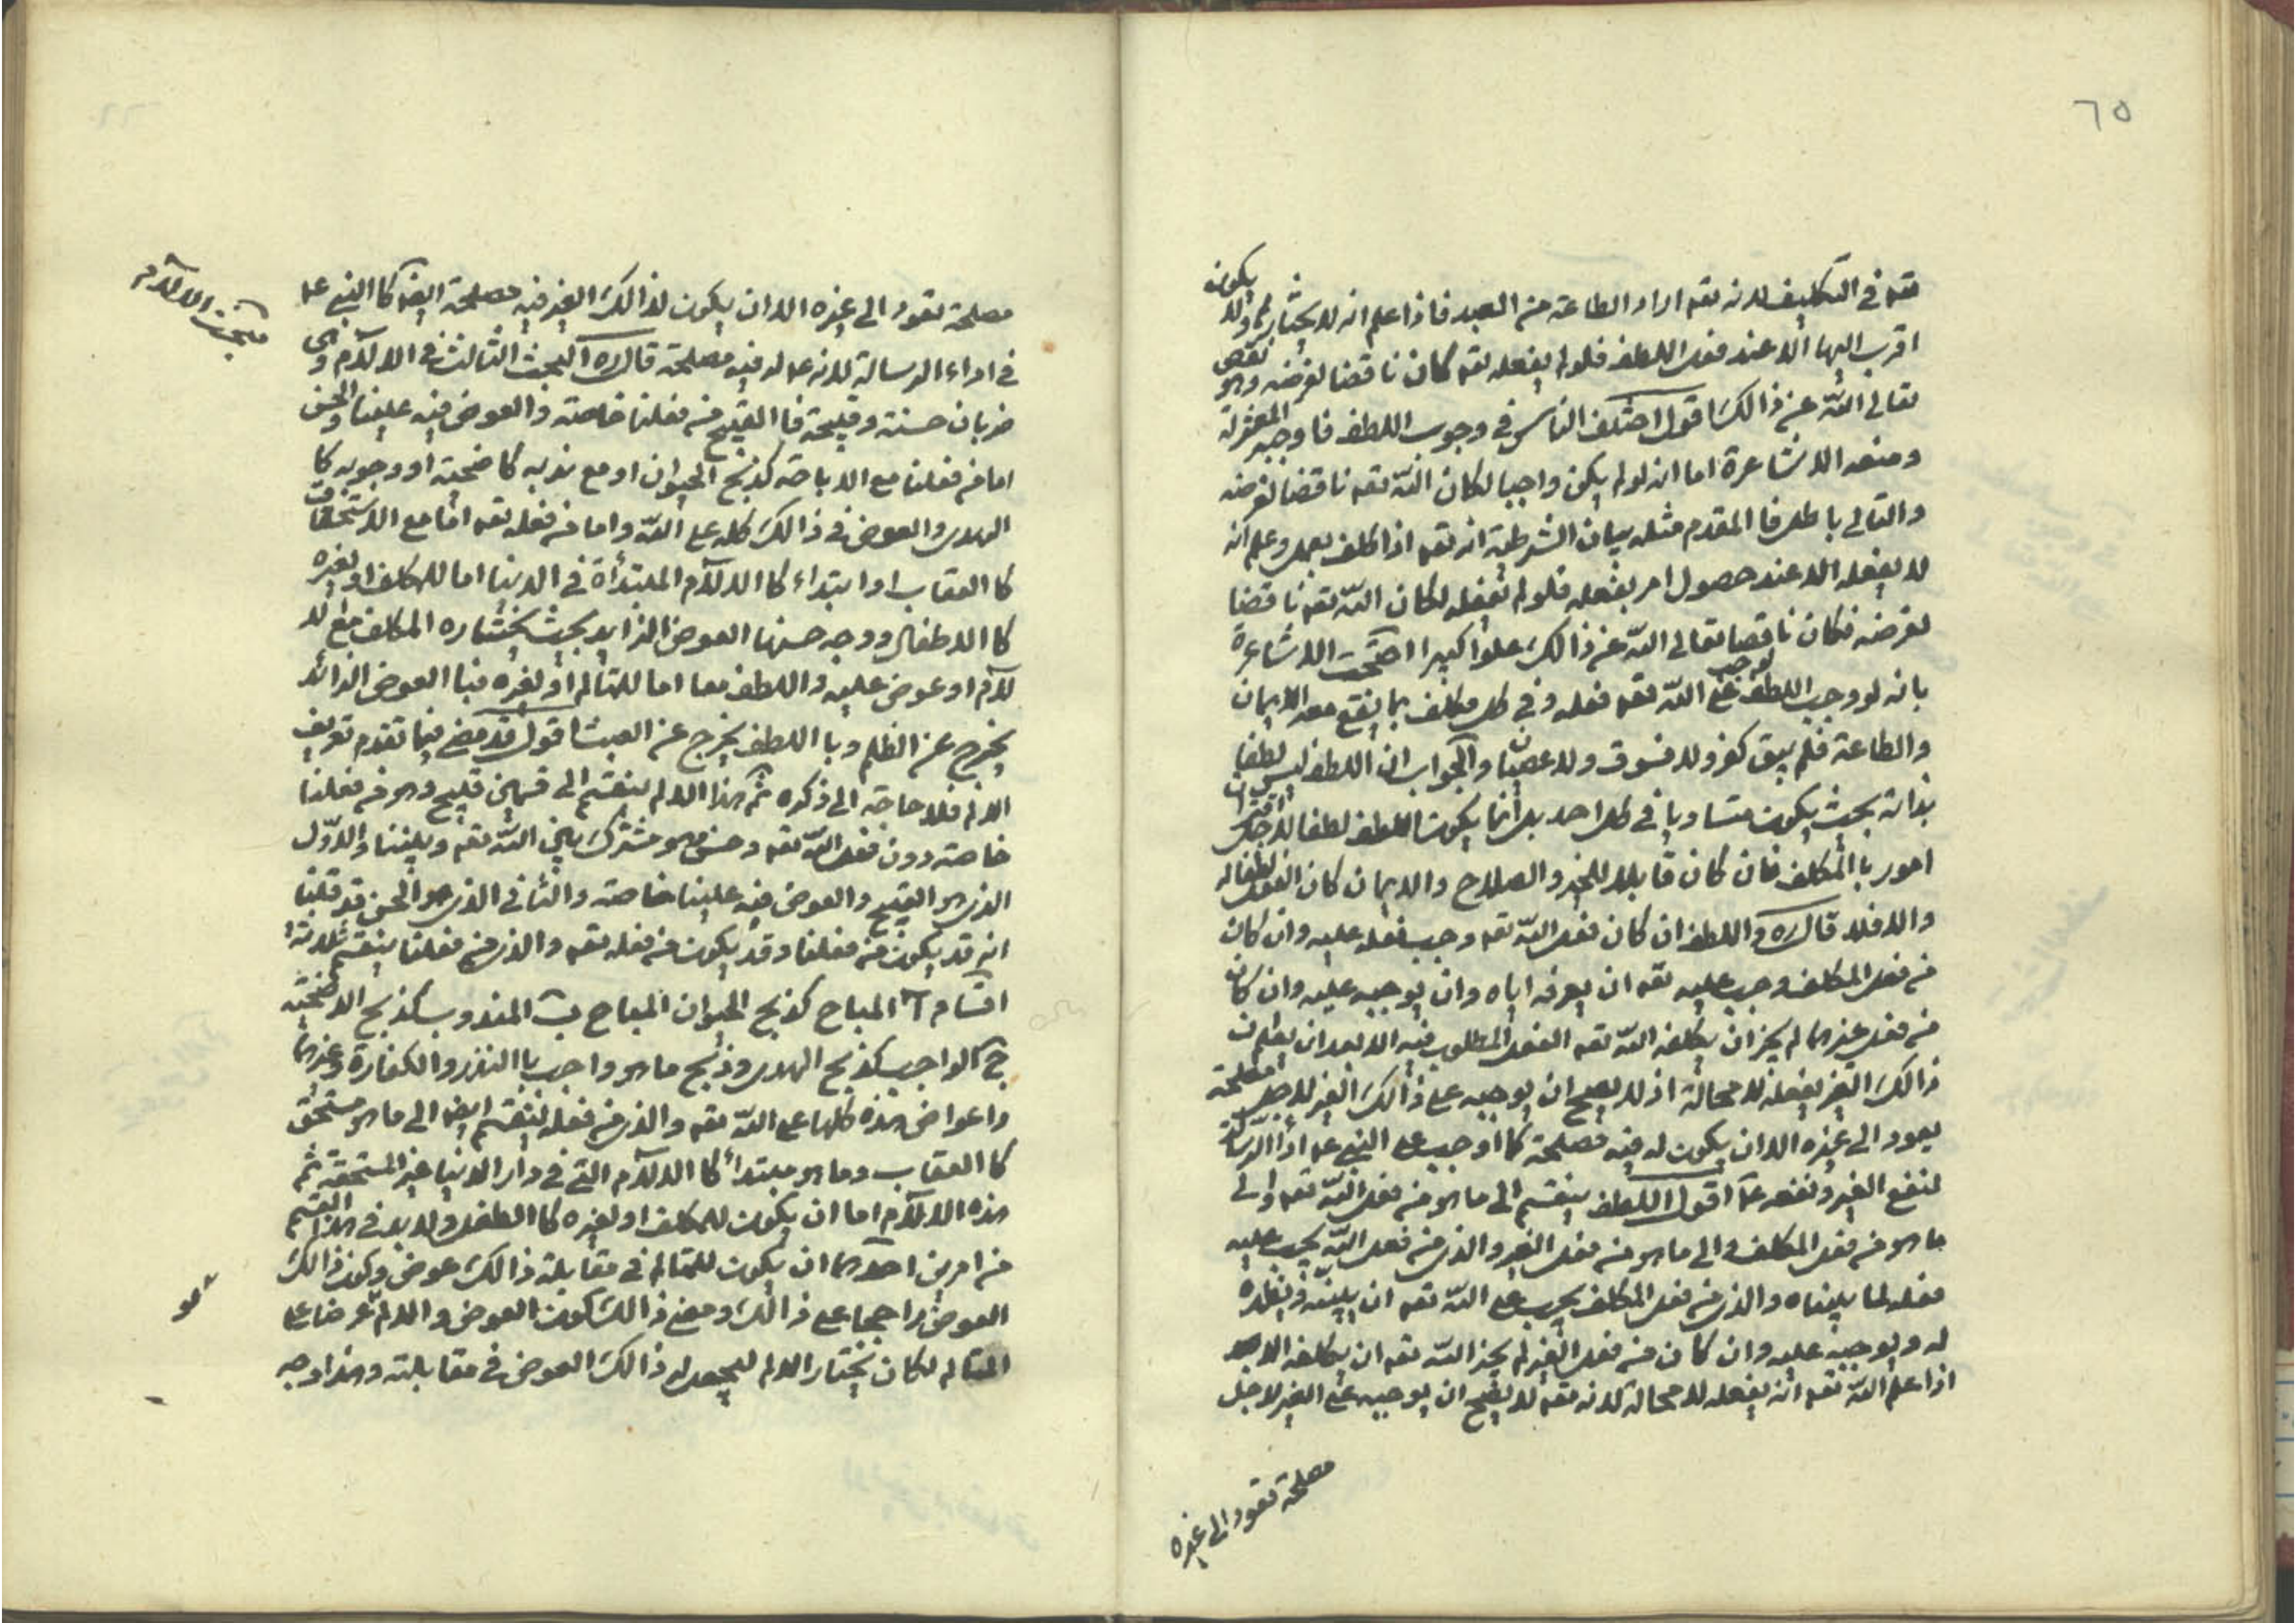 ٦٥
قته في التكليف لانه تعه اراد الطاعة من العبد فاذا علم انه لا يختار ولا يكون
اقرب اليها الا عند فعل اللطف فلو لم يفعله تعه كان ناقضا لغرضه وهو نقص
تعالى الله عن ذالك اقول اختلف الناس في وجوب اللطف فاوجبه المعتزلة
ومنعه الاشاعرة اما انه لو لم يكن واجبا لكان الله تعه ناقضا لغرضه
والتالي باطل فا المقدم مثله بيان الشرطية انه تعه اذا كلف بعمل وعلم انه
لا يفعله الا عند حصول امر يفعله فلو لم يفعله لكان الله تعه ناقضا
لغرضه فكان ناقصا تعالى الله عن ذالك علوا كبيرا احتجت الاشاعرة
بانه لو وجب اللطف على الله تعه فعله وفي كل مكلف بما يقع معه الايمان
والطاعة فلم يبق كفر ولا فسوق ولا عصيان والجواب ان اللطف ليس لطفا
بذاته بحيث يكون متساويا في كل احد بل انما يكون اللطف لطفا لاجل
امور با المكلف فان كان قابلا للخير والصلاح والايمان كان الفعل لطفا له
والا فلا قال ره واللطف ان كان فعل الله تعه وجب فعله عليه وان كان
من فعل المكلف وجب عليه تعه ان يعرفه اياه وان يوجبه عليه وان كان
من فعل غيرهما لم يجز ان يكلفه الله تعه الفعل المطلوب فيه الا بعد ان يعلم ان
ذالك الغير يفعله لا محالة اذ لا يصح ان يوجبه على ذالك الغير لاجل مصلحة
يعود الى غيره الا ان يكون له فيه مصلحة كما اوجب على النبي عم اداء الرسالة
لنفع الغير ونفعه عم اقول اللطف ينقسم الى ما هو من فعل الله تعه والى
ما هو من فعل المكلف والى ما هو من فعل الغير والذي من فعل الله يجب عليه
فعله لما بيناه والذي من فعل المكلف يجب على الله تعه ان يبينه ويظهره
له ويوجبه عليه وان كان من فعل الغير لم يجز الله تعه ان يكلفه الا
اذا علم الله تعه انه يفعله لا محالة لانه تعه لا يصح ان يوجبه على الغير لاجل
مصلحة تعود الى غيره
مبحث الالآم
مصلحة تعود الى غيره الا ان يكون لذالك الغير فيه مصلحة ايضا كا النبي عم
في اداء الرسالة لانه عم له فيه مصلحة قال ره البحث الثالث في الالآم وهي
ضربان حسنة وقبيحة فا القبيح من فعلنا خاصة والعوض فيه علينا والحسن
اما من فعلنا مع الاباحة كذبح الحيوان او مع ندبه كا ضحية او وجوبه كا
الهدى والعوض في ذالك كله على الله واما من فعله تعه اما مع الاستحقاق
كا العقاب او ابتداء كا الالآم المبتدأة في الدنيا اما للمكلف او لغيره
كا الاطفال ووجه حسنها العوض الزايد بحيث يختاره المكلف مع الا
لآم او عوض عليه واللطف معا اما للمتالم او لغيره فبا العوض الزائد
يخرج عن الظلم وبا اللطف يخرج عن العبث اقول قد مضى فيما تقدم تعريف
الالم فلا حاجة الى ذكره ثم هذا الالم ينقسم الى قسمين قبيح وهو من فعلنا
خاصة دون فعل الله تعه وحسن وهو مشترك بين الله تعه وبيننا والاول
الذي هو القبيح والعوض فيه علينا خاصة والثاني الذي هو الحسن قد قلنا
انه قد يكون من فعلنا وقد يكون من فعله تعه والذي من فعلنا ينقسم ثلاثة
اقسام آ المباح كذبح الحيوان المباح ب المندوب كذبح الاضحية
ج الواجب كذبح الهدى وذبح ما هو واجب با النذر والكفارة وغيرهما
واعواض هذه كلها على الله تعه والذي من فعله ينقسم ايضا الى ما هو مستحق
كا العقاب وما هو مبتدأ كا الالآم التي في دار الدنيا غير المستحقة ثم
هذه الالآم اما ان يكون للمكلف او لغيره كا الطفل ولا بد في هذا القسم
من امرين احدهما ان يكون للمتالم في مقابلة ذالك عوض وكون ذالك
العوض راجحا على ذالك ومعنى ذالك كون العوض والالم عرضا على
المتالم لكان يختار الالم ليحصل له ذالك العوض في مقابلته وهذا وجه